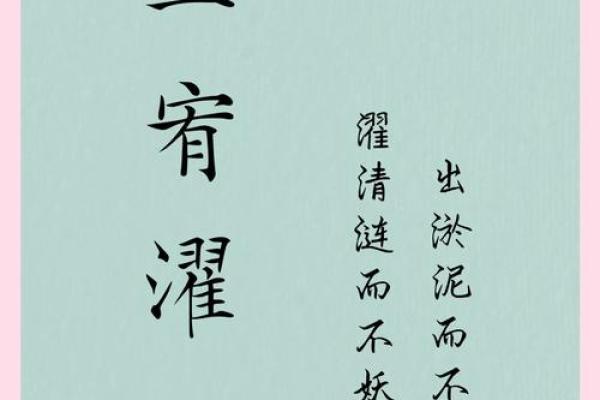 出淤泥而不
濯清涟而不妖
宥濯